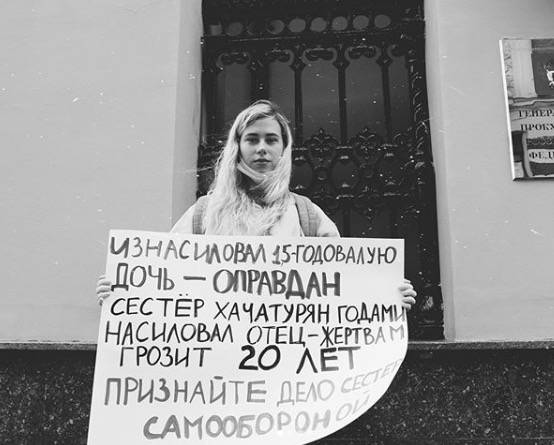 ИЗНАСИЛОВАЛ 1,5-ГОДОВАЛУЮ
ДОЧЬ — ОПРАВДАН
СЕСТЁР ХАЧАТУРЯН ГОДАМИ
НАСИЛОВАЛ ОТЕЦ-ЖЕРТВАМ
ГРОЗИТ 20 ЛЕТ
ПРИЗНАЙТЕ ДЕЛО СЕСТЁР
САМООБОРОНОЙ
ГЕНЕРА
ПРОКУ
ФЕД